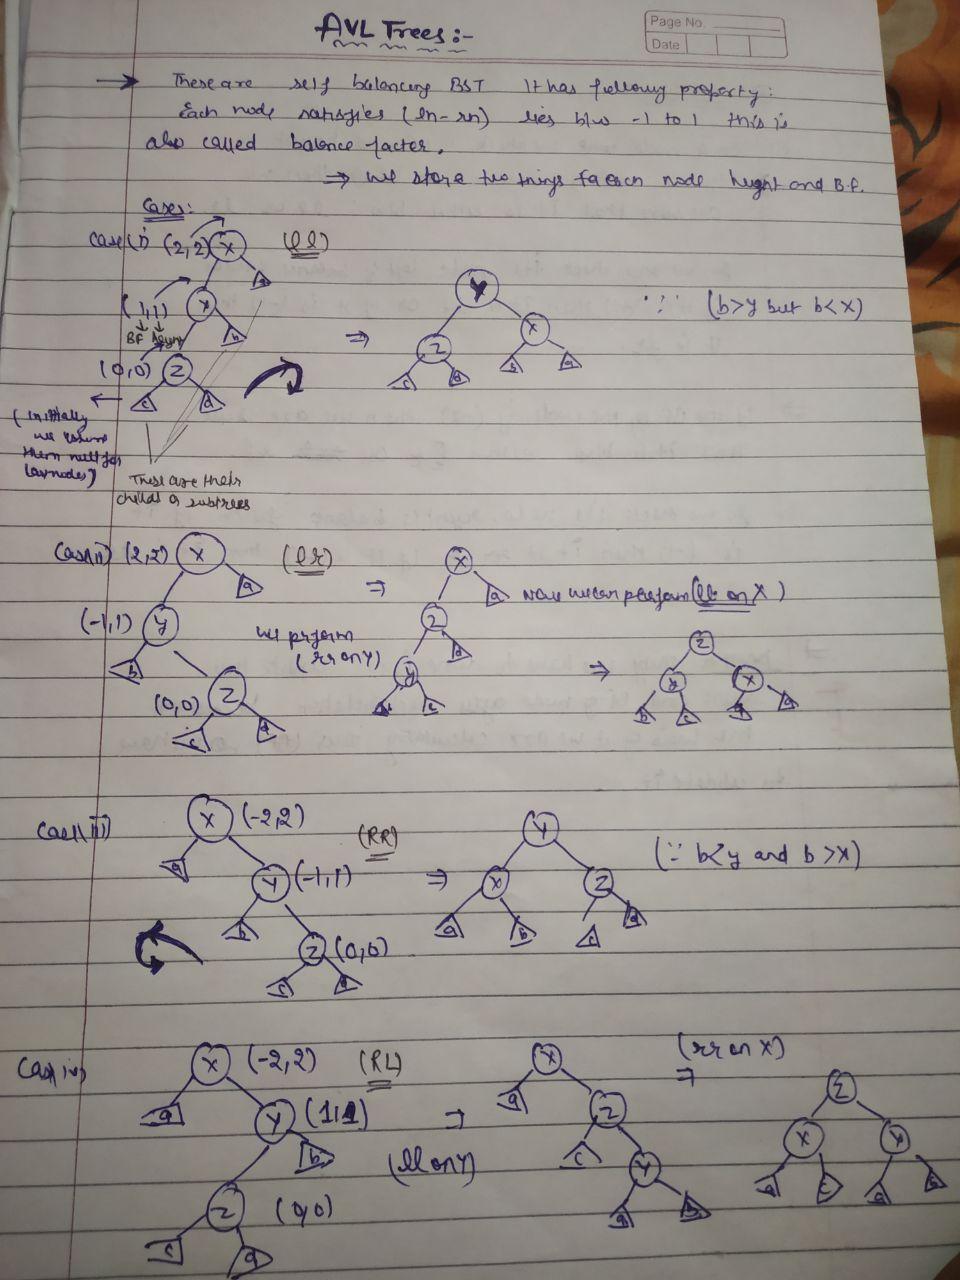 AVL Trees:-
Page No.
Date
→ These are self balancing BST It has following property:
Each node satisfies (lh-rh) lies b/w -1 to 1 this is
also called balance factor.
⇒ we store two things for each node height and B.f.
Cases:
Case(i) (2,2) X (ll)
a
(1,1) Y
BF
b
(0,0) Z
c d
⇒
Y
Z X
c d b a
∵ (b>y but b<x)
(initially
we
them null for
nodes)
These are their
childs or subtrees
Case(ii) (2,2) X (lr)
a
(-1,1) Y
b
(0,0) Z
c d
we perform
(rr on Y)
⇒
X
Z a
Y d
b c
Now we can perform (ll on X)
⇒
Z
Y X
b c d a
Case(iii) X (-2,2) (RR)
a
Y (-1,1)
b
Z (0,0)
c d
⇒
Y
X Z
a b c d
(∵ b<y and b>x)
Case(iv) X (-2,2) (RL)
a
Y (1,1)
b
Z (0,0)
c d
⇒
(ll on Y)
X
a Z
c Y
d b
(rr on X)
⇒
Z
X Y
a c d b